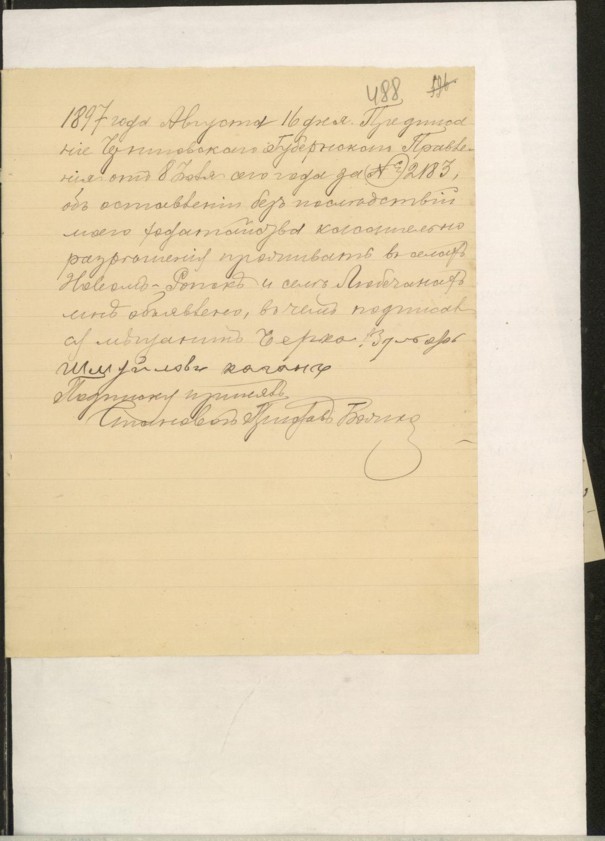 488
1897 года Августа 16 дня. Предписа
ніе Черниговскаго Губернскаго Правле-
нія отъ 8 сего года за № 2183,
объ оставленіи безъ послѣдствій
моего ходатайства касательно
разрѣшенія проживать въ селахъ
Новомъ-Ропскѣ и селѣ
мнѣ объявлено, въ чемъ подписал
ся мѣщанинъ Берко
Шмуйлови каганъ
Подписку принялъ
Становой Приставъ